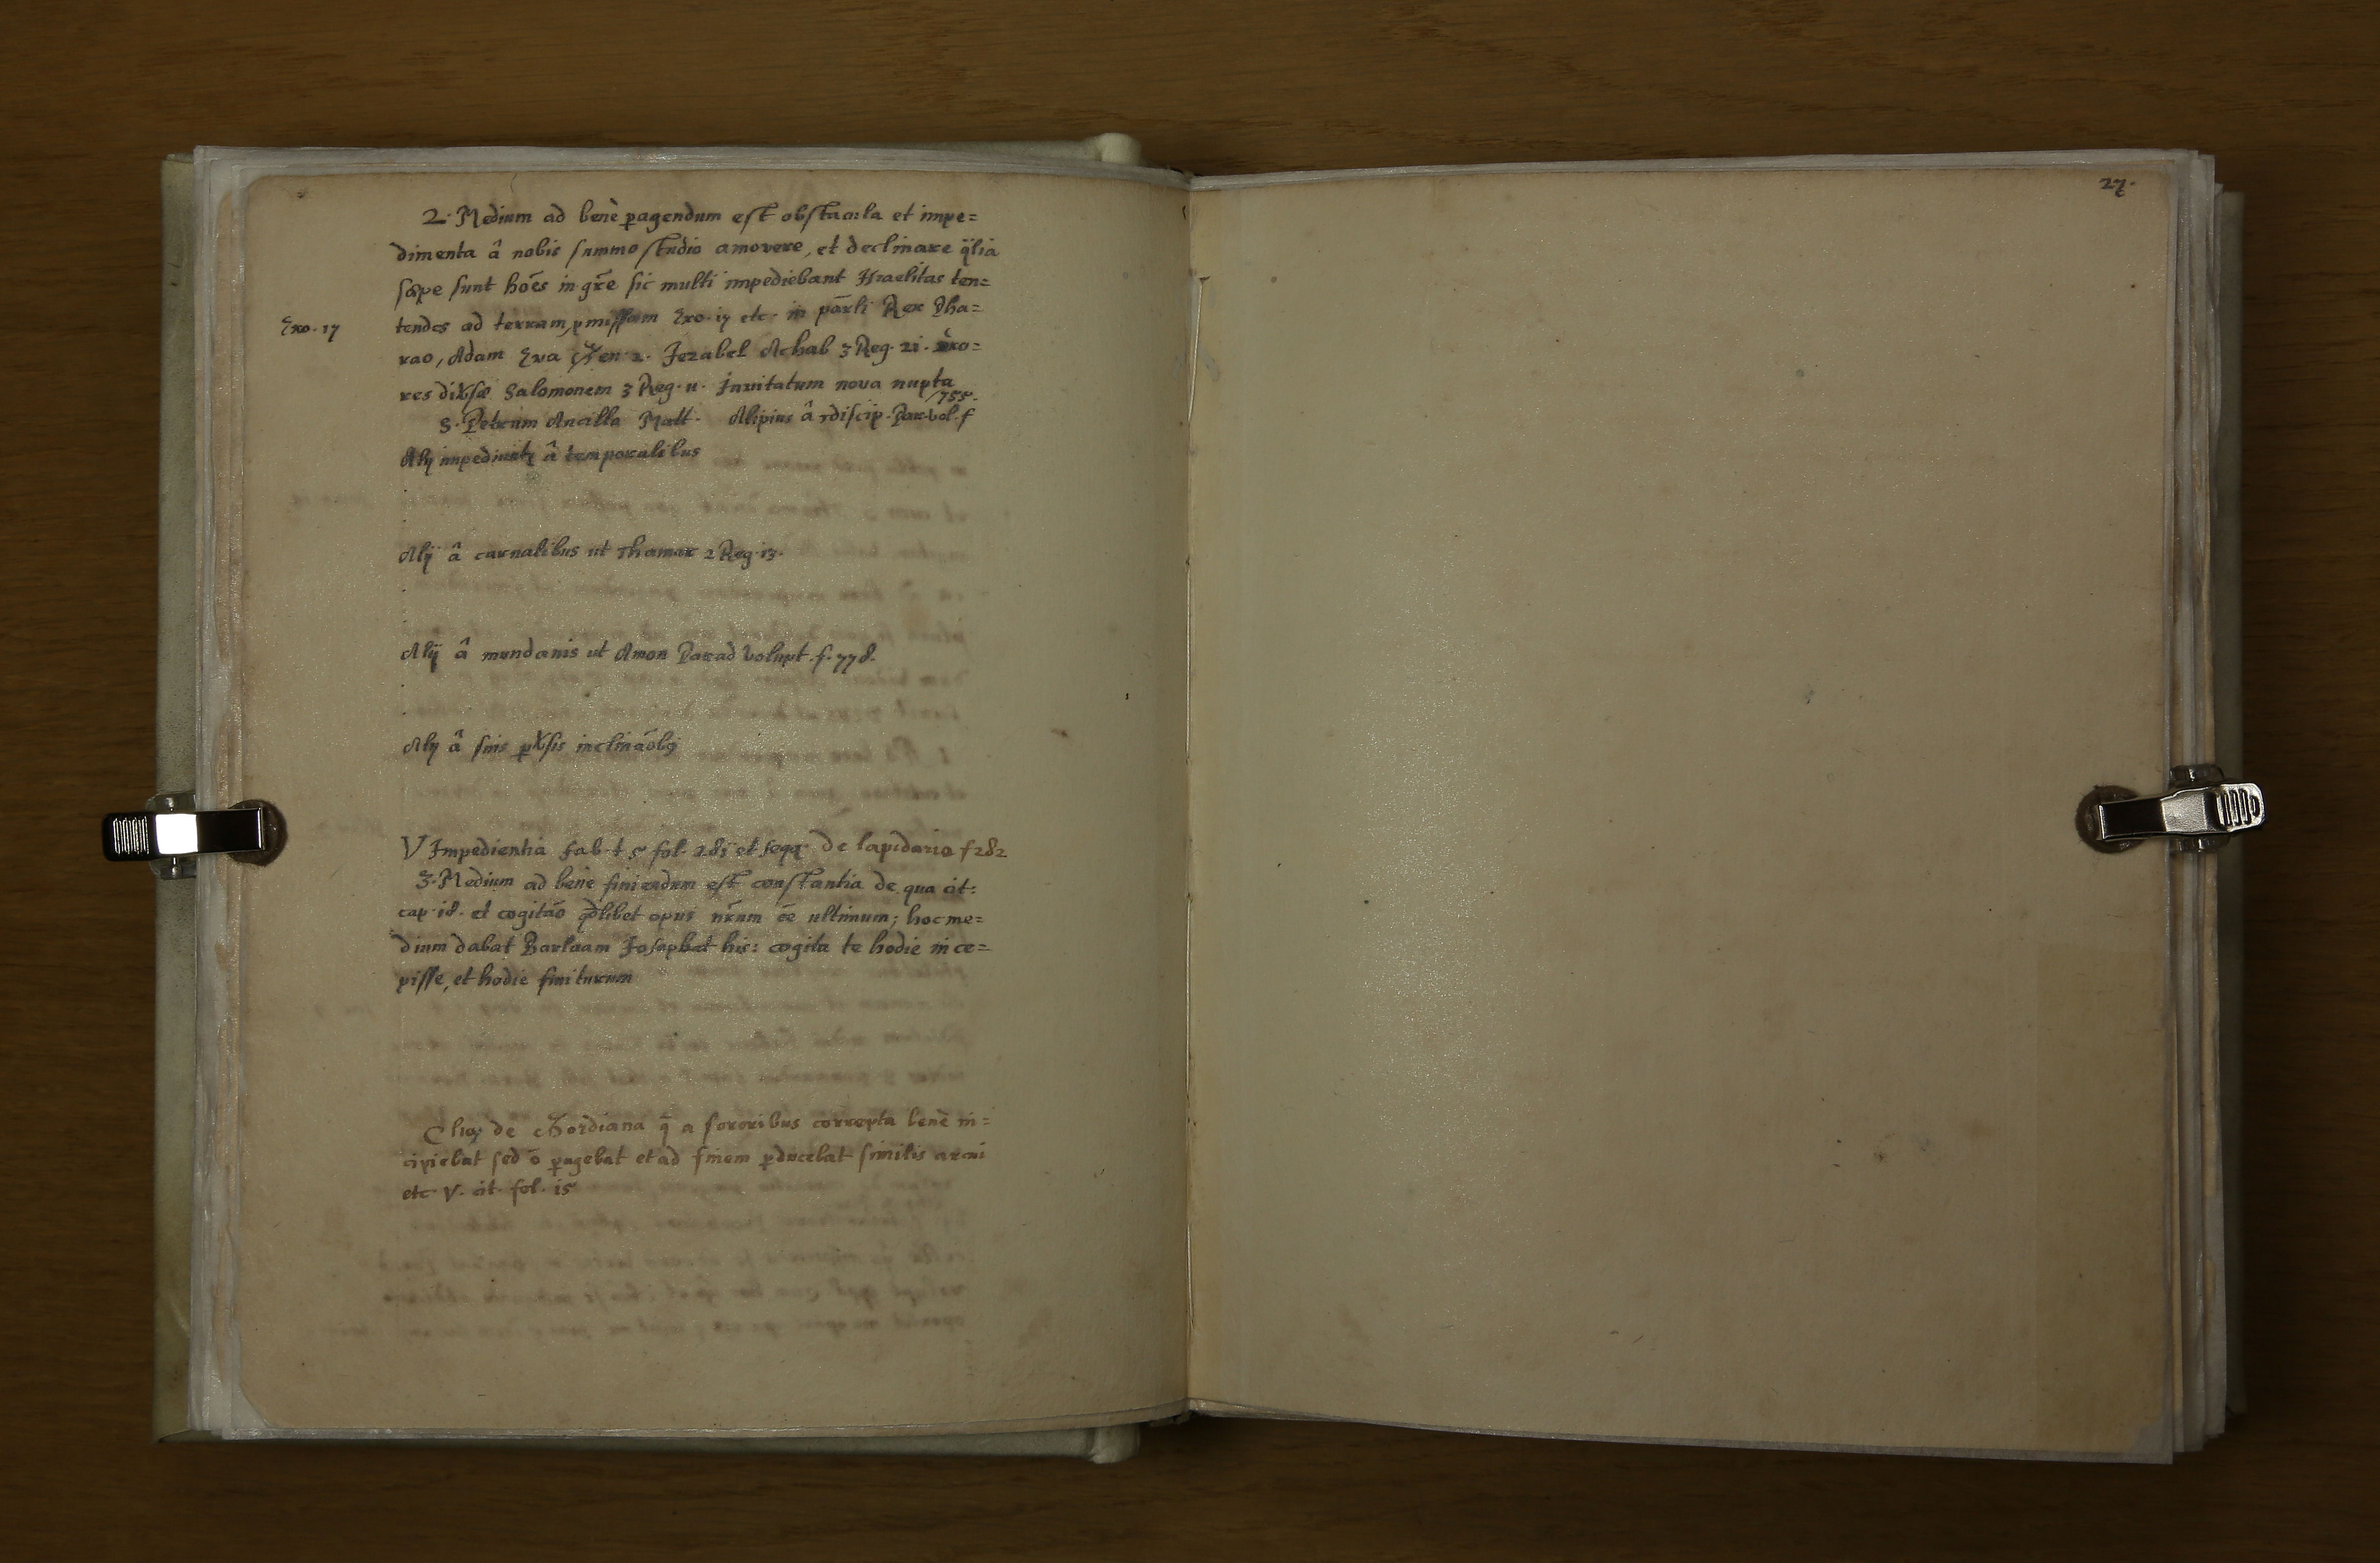 2. Medium ad benè pagendum est obstacula et impe=
dimenta â nobis summo studio amovere, et declinare q̃lia
sæpe sunt hoẽs in gr̃e sic multi impediebant Israelitas ten=
Exo. 17
tendes ad terram pmissam Exo. 17 etc. in par̃li Rex Pha=
rao, Adam Eva Gen. 2. Jezabel Achab 3 Reg. 21. uxo=
res Salomonem 3 Reg. 11. Invitatum nova nupta
S. Petrum Ancilla Matt. Alipius â discip. Par. vol. f 755.
Alij â temporalibus
Alij â carnalibus ut Thamar 2 Reg. 13.
Alij â mundanis ut Amon Parad volupt. f. 778.
Alij â suis inclinaõbq
V Impedientia fab. t 5 fol. 281 et seqq. de lapidario f 282
3. Medium ad benè finiendum est constantia de qua cit:
cap. 18. et cogitaõ qdlibet opus nr̃um eẽ ultimum; hoc me=
dium dabat Barlaam Josaphat his: cogita te hodie ince=
pisse, et hodie finiturum
de Gordiana q̃ a sororibus correpta benè in=
cipiebat sed õ pagebat et ad finem pducebat similis arcui
etc. V. cit. fol. 15
27.